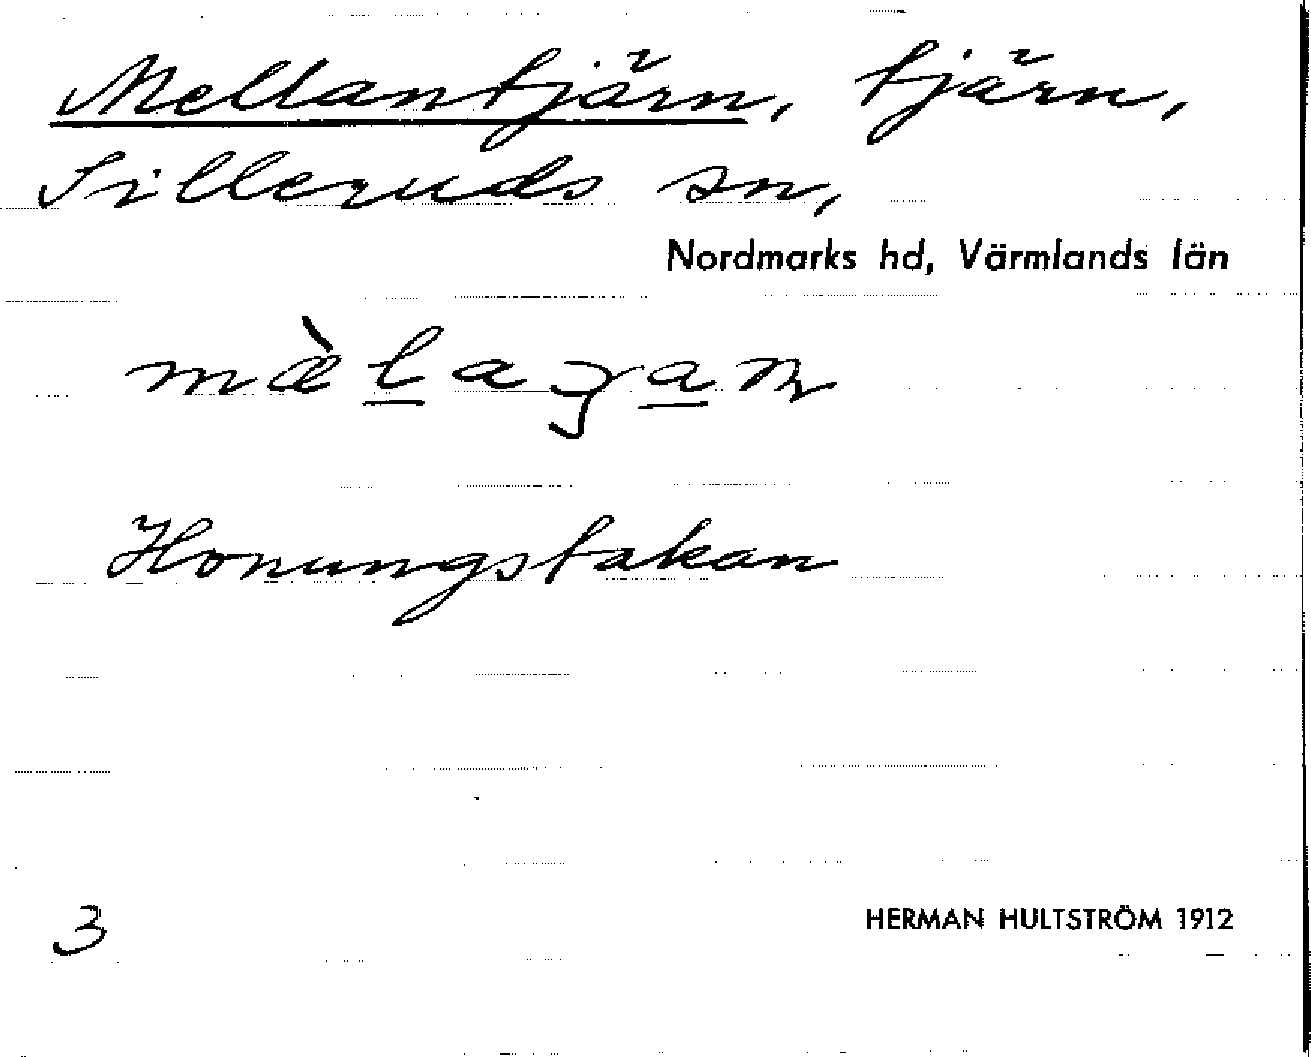 Mellantjärn, tjärn,
Silleruds sn,
Nordmarks hd, Värmlands län
Honungstakan
3
HERMAN HULTSTRÖM 1912